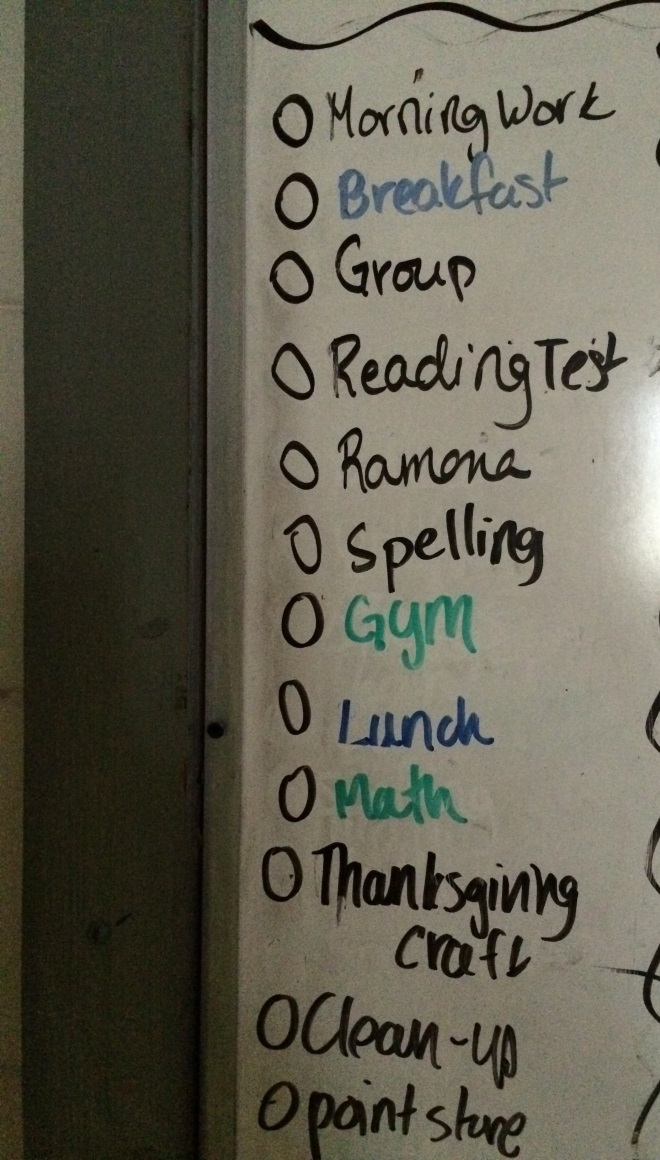 Morning Work
Breakfast
Group
Reading Test
Ramona
Spelling
Gym
Lunch
Math
Thanksgiving
craft
Clean-up
point store